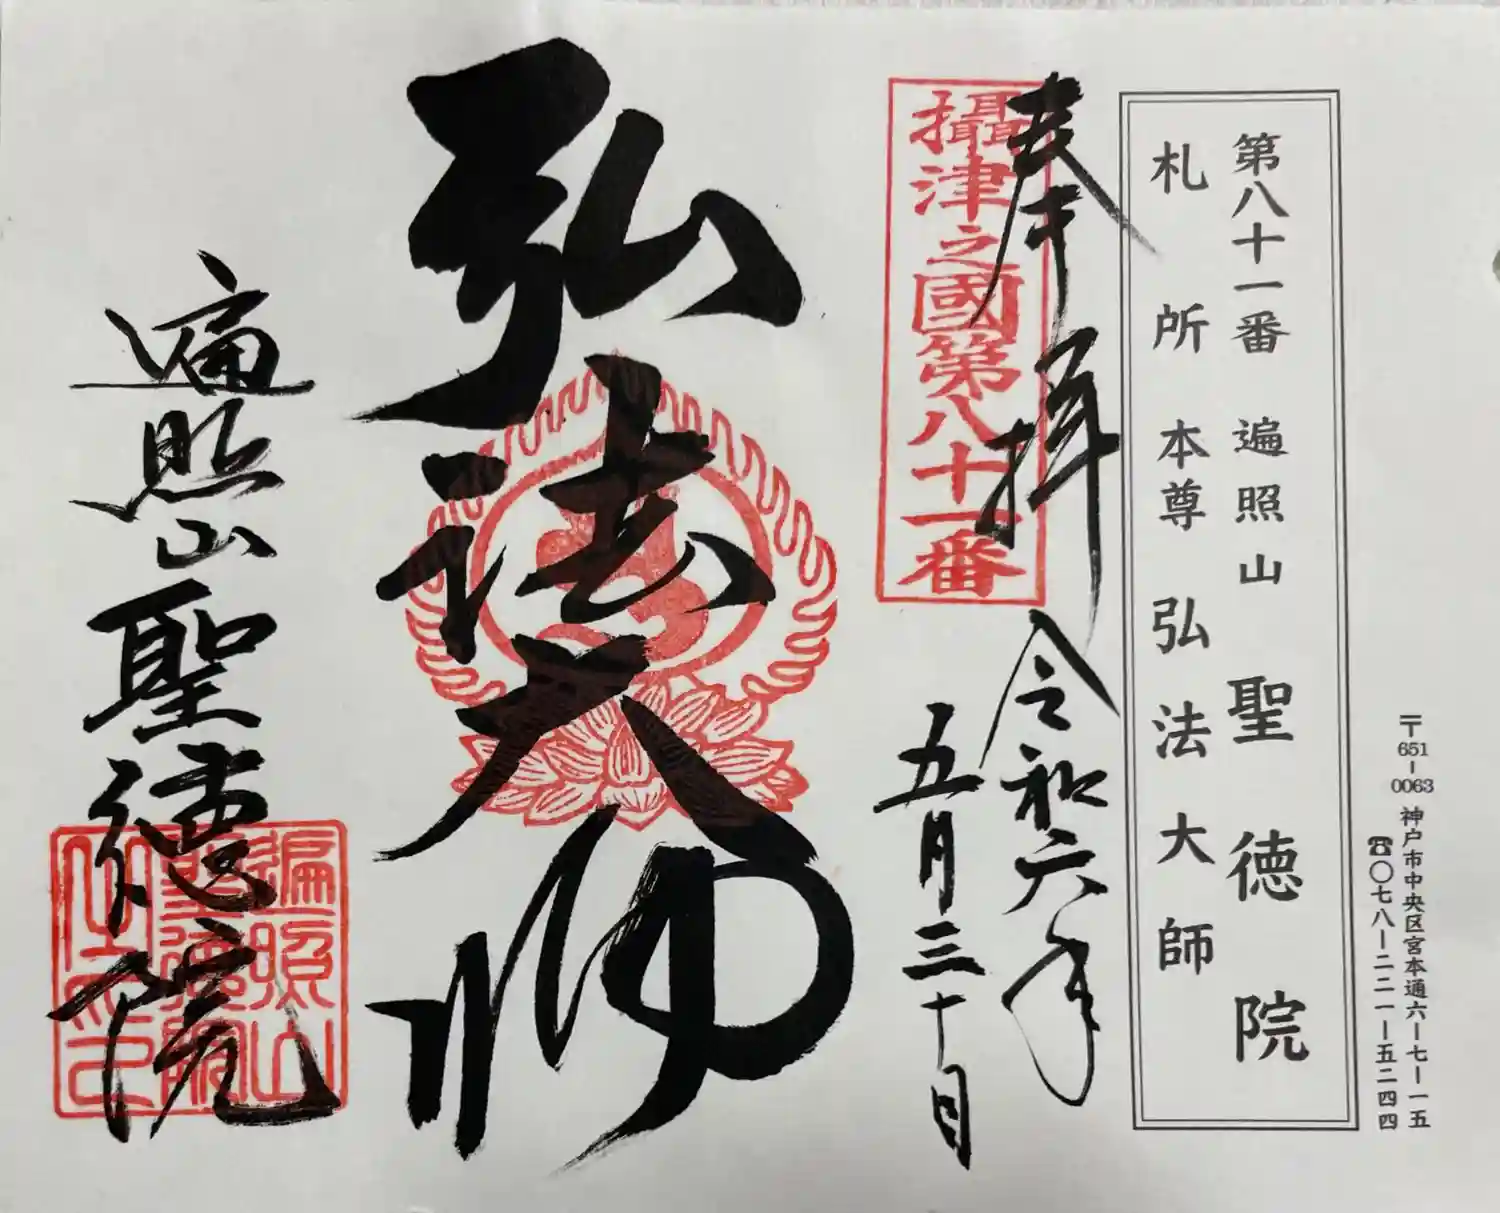 〒651-0063 神戸市中央区宮本通六ー七ー一五
☎〇七八ー二二一ー五二四四
第八十一番 遍照山 聖徳院
札所本尊 弘法大師
奉拝 令和六年
五月三十日
攝津之國第八十一番
弘法大師
遍照山聖德院
遍照山
聖德院